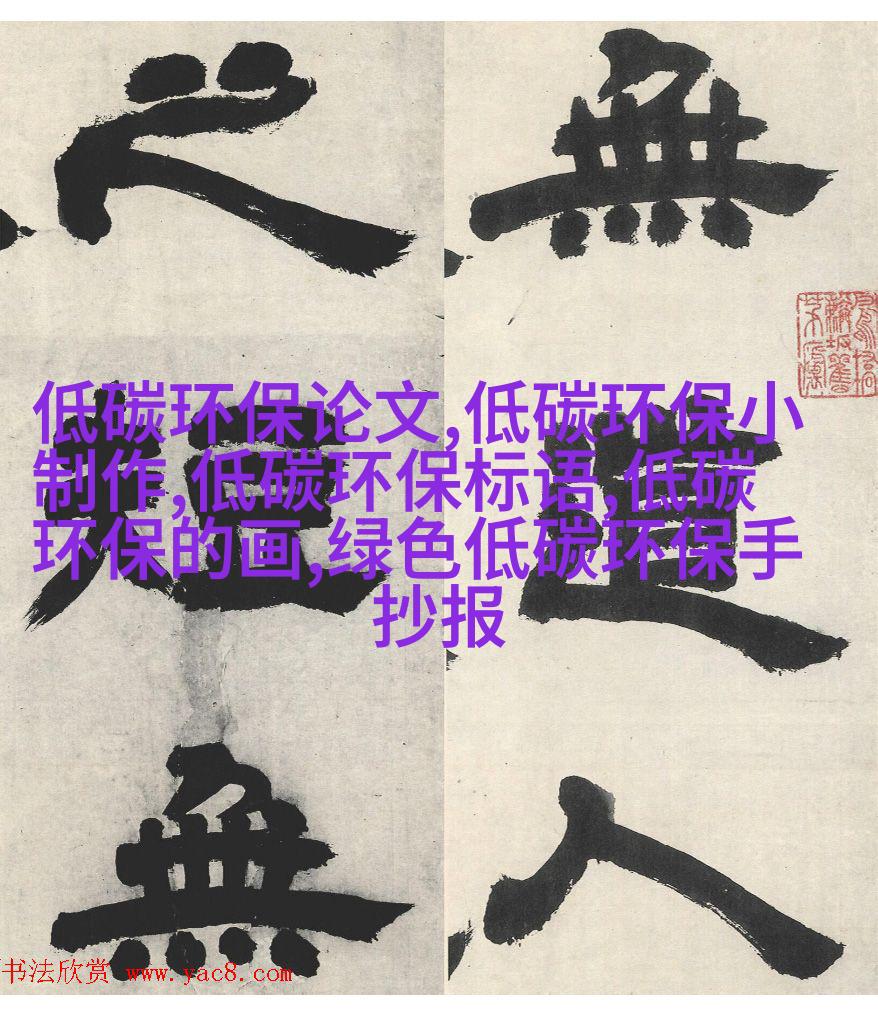 無道人
之短無
低碳环保论文,低碳环保小
制作,低碳环保标语,低碳
环保的画,绿色低碳环保手
抄报
书法欣赏 www.yac8.com